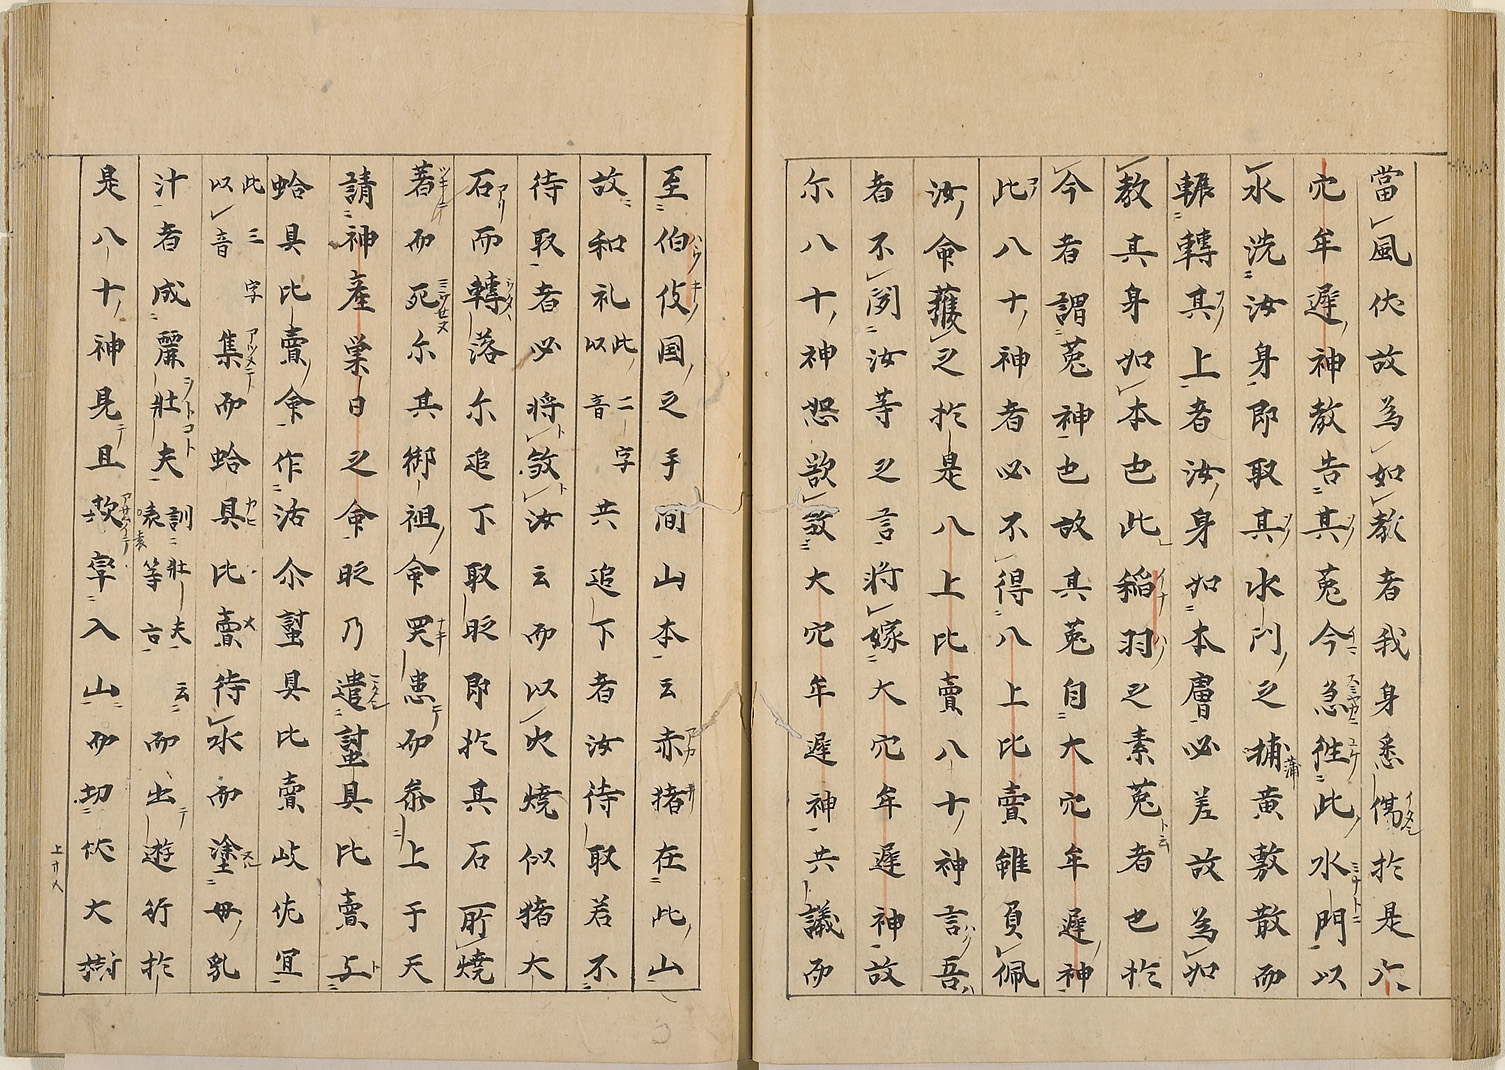 當風伏故為如教者我身悉傷於是大
穴牟遲神教告其菟今急往此水門以
水洗汝身即取其水門之蒲黄敷散而
輾轉其上者汝身如本膚必差故為如
教其身如本也此稲羽之素菟者也於
今者謂菟神也故其菟白大穴牟遲神
此八十神者必不得八上比賣雖負佩
汝命獲之於是八上比賣八十神言吾
者不聞汝等之言将嫁大穴牟遲神故
尓八十神怒欲敚大穴牟遲神共議而
至伯伎国之手間山本云赤猪在此山
故和礼此二字以音共追下者汝待取若不
待取者必将敚汝云而以火焼似猪大
石而轉落尓追下取眡即於其石所焼
著而死尓其御祖命哭患而参上于天
請神産巣日之命眡乃遣𧏛具比賣与
蛤具比賣命作活尓𧏛具比賣岐佐冝
此三字以音集而蛤具比賣待水而塗母乳
汁者成麗壮夫訓壮夫云袁等古而出遊行於
是八十神見且欺率入山而切伏大樹